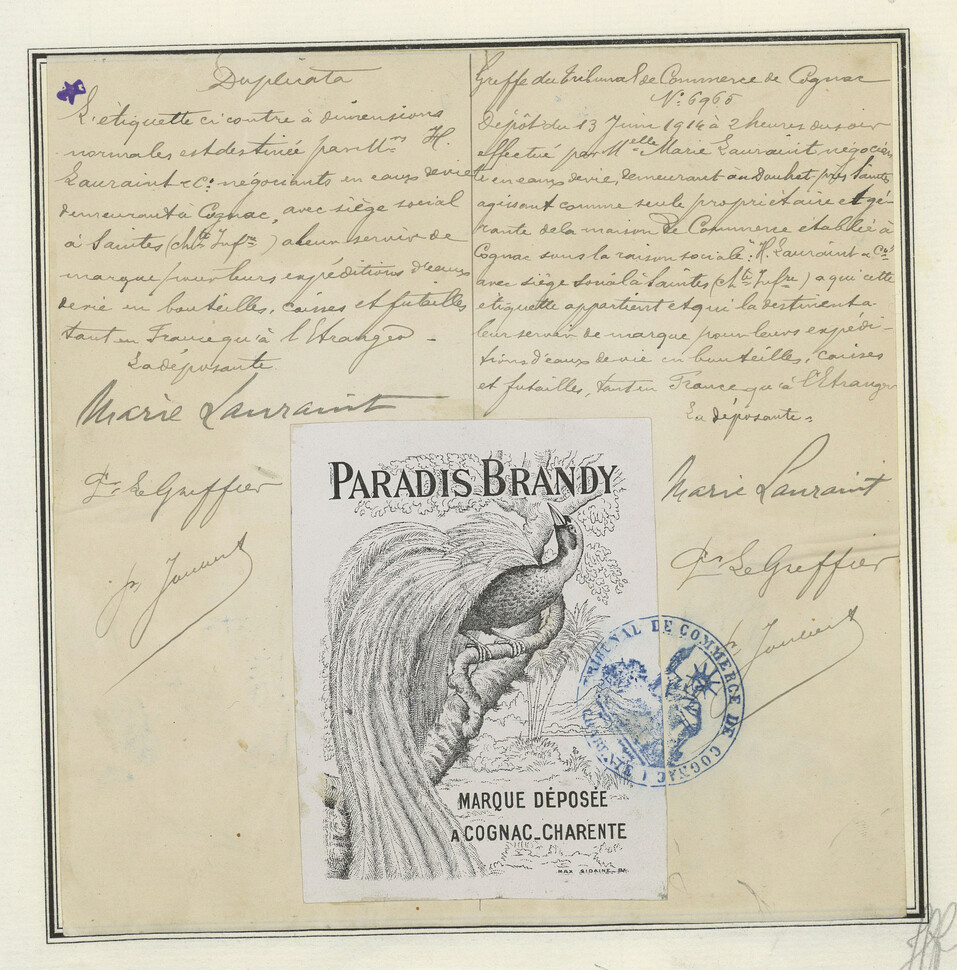 Duplicata
L'étiquette ci contre à dimensions
normales est destinée par Mrs H.
Lauraint & Cie négociants en eaux de vie
demeurant à Cognac, avec siège social
à Saintes (chte Infre) à leur servir de
marque pour leurs expéditions d'eaux
de vie en bouteilles, caisses et futailles
tant en France qu'à l'Etranger
La déposante
Marie Lauraint
Le Greffier
Greffe du Tribunal de Commerce de Cognac
No 6965
Dépôt du 13 Juin 1914 à 2 heures du soir
effectué par Melle Marie Lauraint, négociante
en eaux de vie, demeurant au Douhet près Saintes
agissant comme seule propriétaire et gé-
rante de la maison de Commerce établie à
Cognac sous la raison sociale: H. Lauraint & Cie
avec siège social à Saintes (chte Infre) à qui cette
étiquette appartient et qui la destinent à
leur servir de marque pour leurs expédi-
tions d'eaux de vie en bouteilles, caisses
et futailles, tant en France qu'à l'Etranger
La déposante.
Marie Lauraint
Le Greffier
PARADIS BRANDY
MARQUE DÉPOSÉE
A COGNAC_CHARENTE
TRIBUNAL DE COMMERCE DE COGNAC